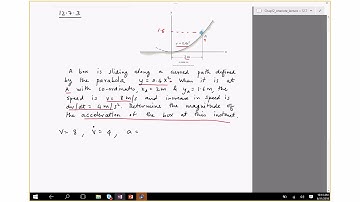 12.7.2
1.6
A
2m
A box is sliding along a curved path defined
by the parabola, y = 0.4x². When it is at
A with co-ordinates, xₐ = 2m & yₐ = 1.6m, the
speed is v = 8m/s and increase in speed is
dv/dt = 4m/s². Determine the magnitude of
the acceleration of the box at this instant.
v = 8, v̇ = 4, a =